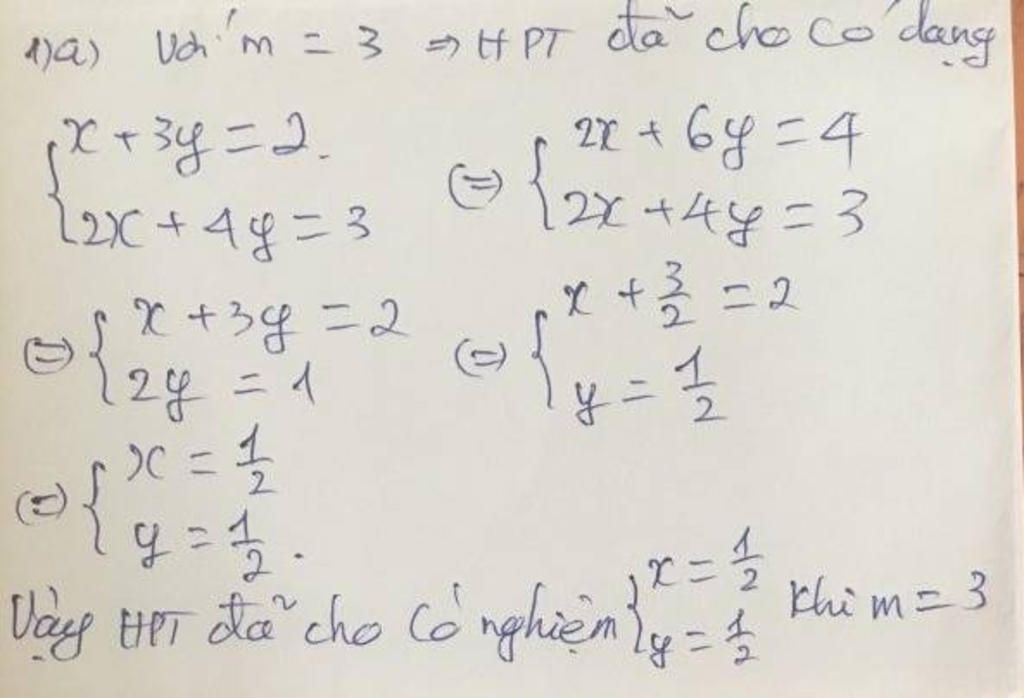 1)a) Với m = 3 => HPT đã cho có dạng
{ x + 3y = 2. (=) { 2x + 6y = 4
{ 2x + 4y = 3 { 2x + 4y = 3
(=) { x + 3y = 2 (=) { x + 3/2 = 2
{ 2y = 1 { y = 1/2
(=) { x = 1/2
{ y = 1/2.
Vậy HPT đã cho có nghiệm { x = 1/2 khi m = 3
{ y = 1/2